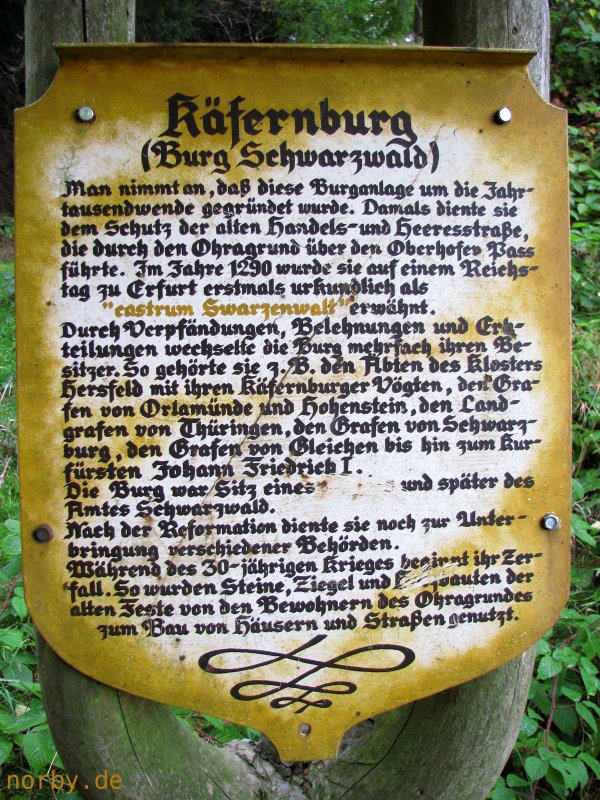 Käfernburg
(Burg Schwarzwald)
Man nimmt an, daß diese Burganlage um die Jahr-
tausendwende gegründet wurde. Damals diente sie
dem Schutz der alten Handels- und Heeresstraße,
die durch den Ohragrund über den Oberhofer Pass
führte. Im Jahre 1290 wurde sie auf einem Reichs-
tag zu Erfurt erstmals urkundlich als
"castrum Swarzenwalt" erwähnt.
Durch Verpfändungen, Belehnungen und Erb-
teilungen wechselte die Burg mehrfach ihren Be-
sitzer. So gehörte sie z. B. den Äbten des Klosters
Hersfeld mit ihren Käfernburger Vögten, der Gra-
fen von Orlamünde und Hohenstein, den Land-
grafen von Thüringen, den Grafen von Schwarz-
burg, den Grafen von Gleichen bis hin zum Kur-
fürsten Johann Friedrich I.
Die Burg war Sitz eines und später des
Amtes Schwarzwald.
Nach der Reformation diente sie noch zur Unter-
bringung verschiedener Behörden.
Während des 30-jährigen Krieges beginnt ihr Zer-
fall. So wurden Steine, Ziegel und der
alten Feste von den Bewohnern des Ohragrundes
zum Bau von Häusern und Straßen genutzt.
norby.de